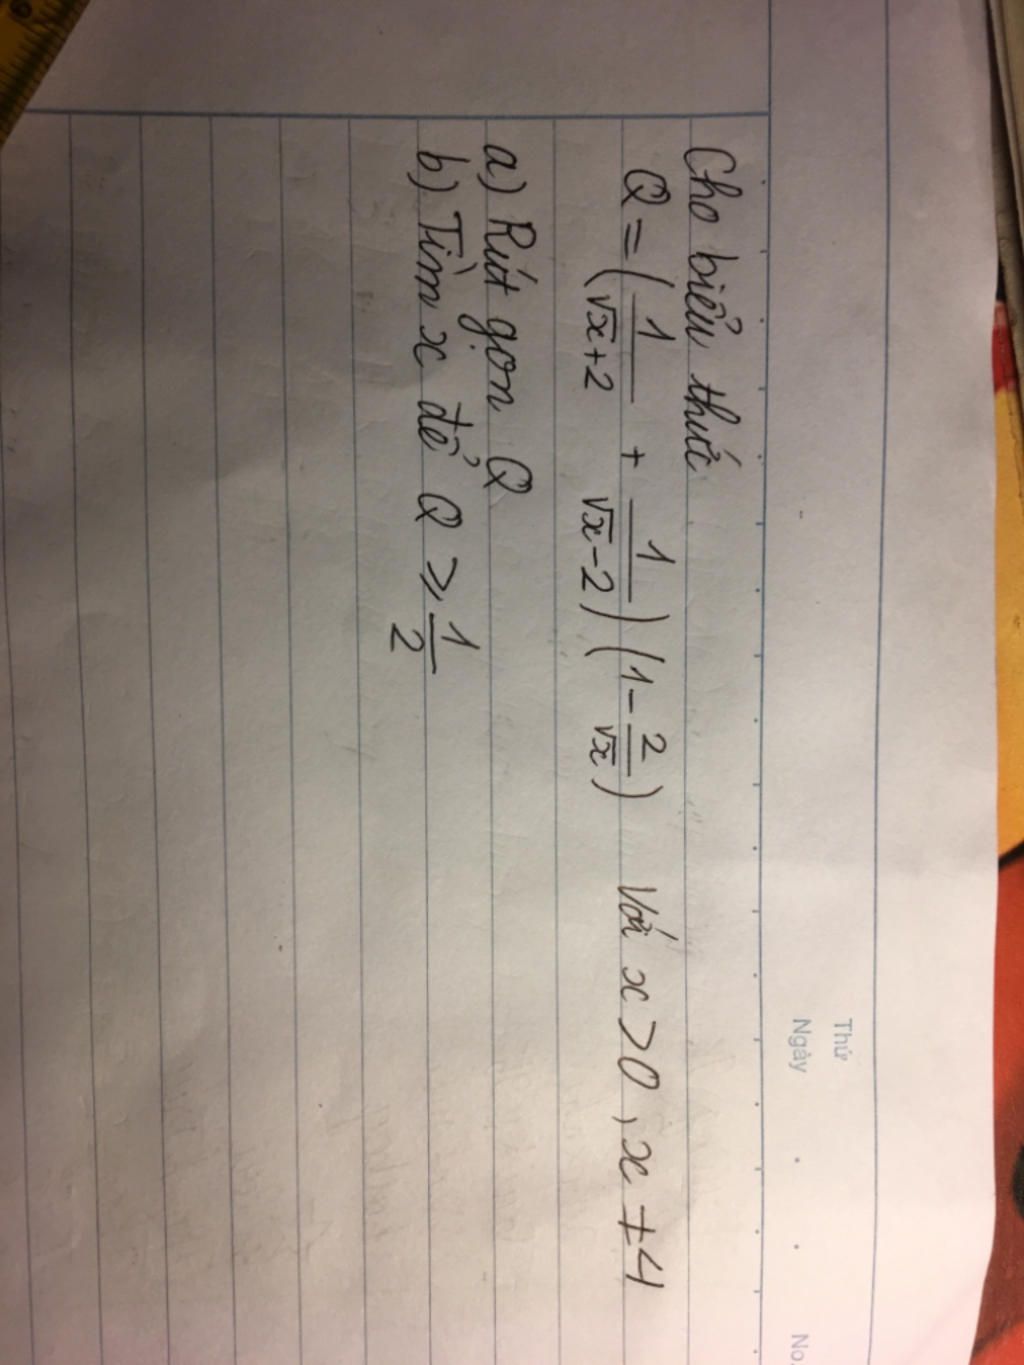 Thứ
Ngày
No.
Cho biểu thức
Q = (1/(√x+2) + 1/(√x-2)) (1 - 2/√x) Với x > 0, x ≠ 4
a) Rút gọn Q
b) Tìm x để Q ⩾ 1/2